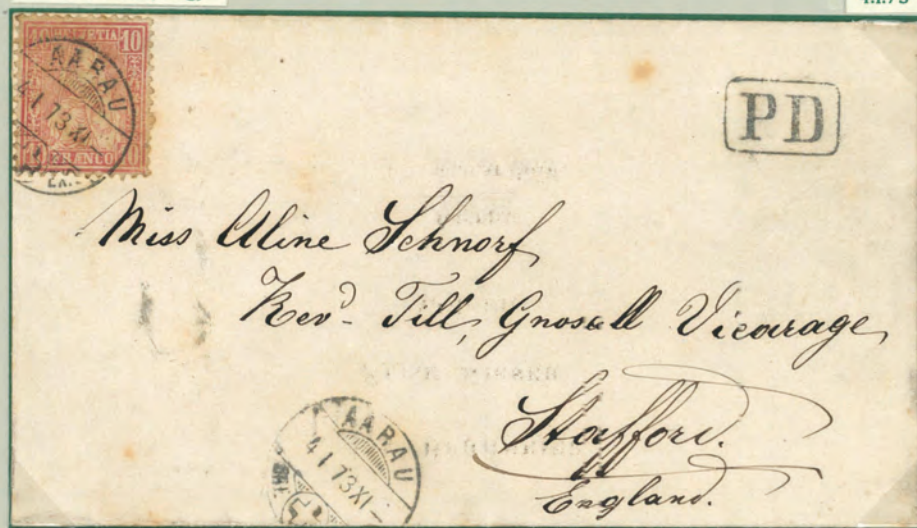 1.1.73
HELVETIA 10
FRANCO
AARAU
4 I 73 XI-
PD
Miss Aline Schnorf
Revd. Till, Gnosall Vicarage
Stafford.
England.
AARAU
4 I 73 XI-